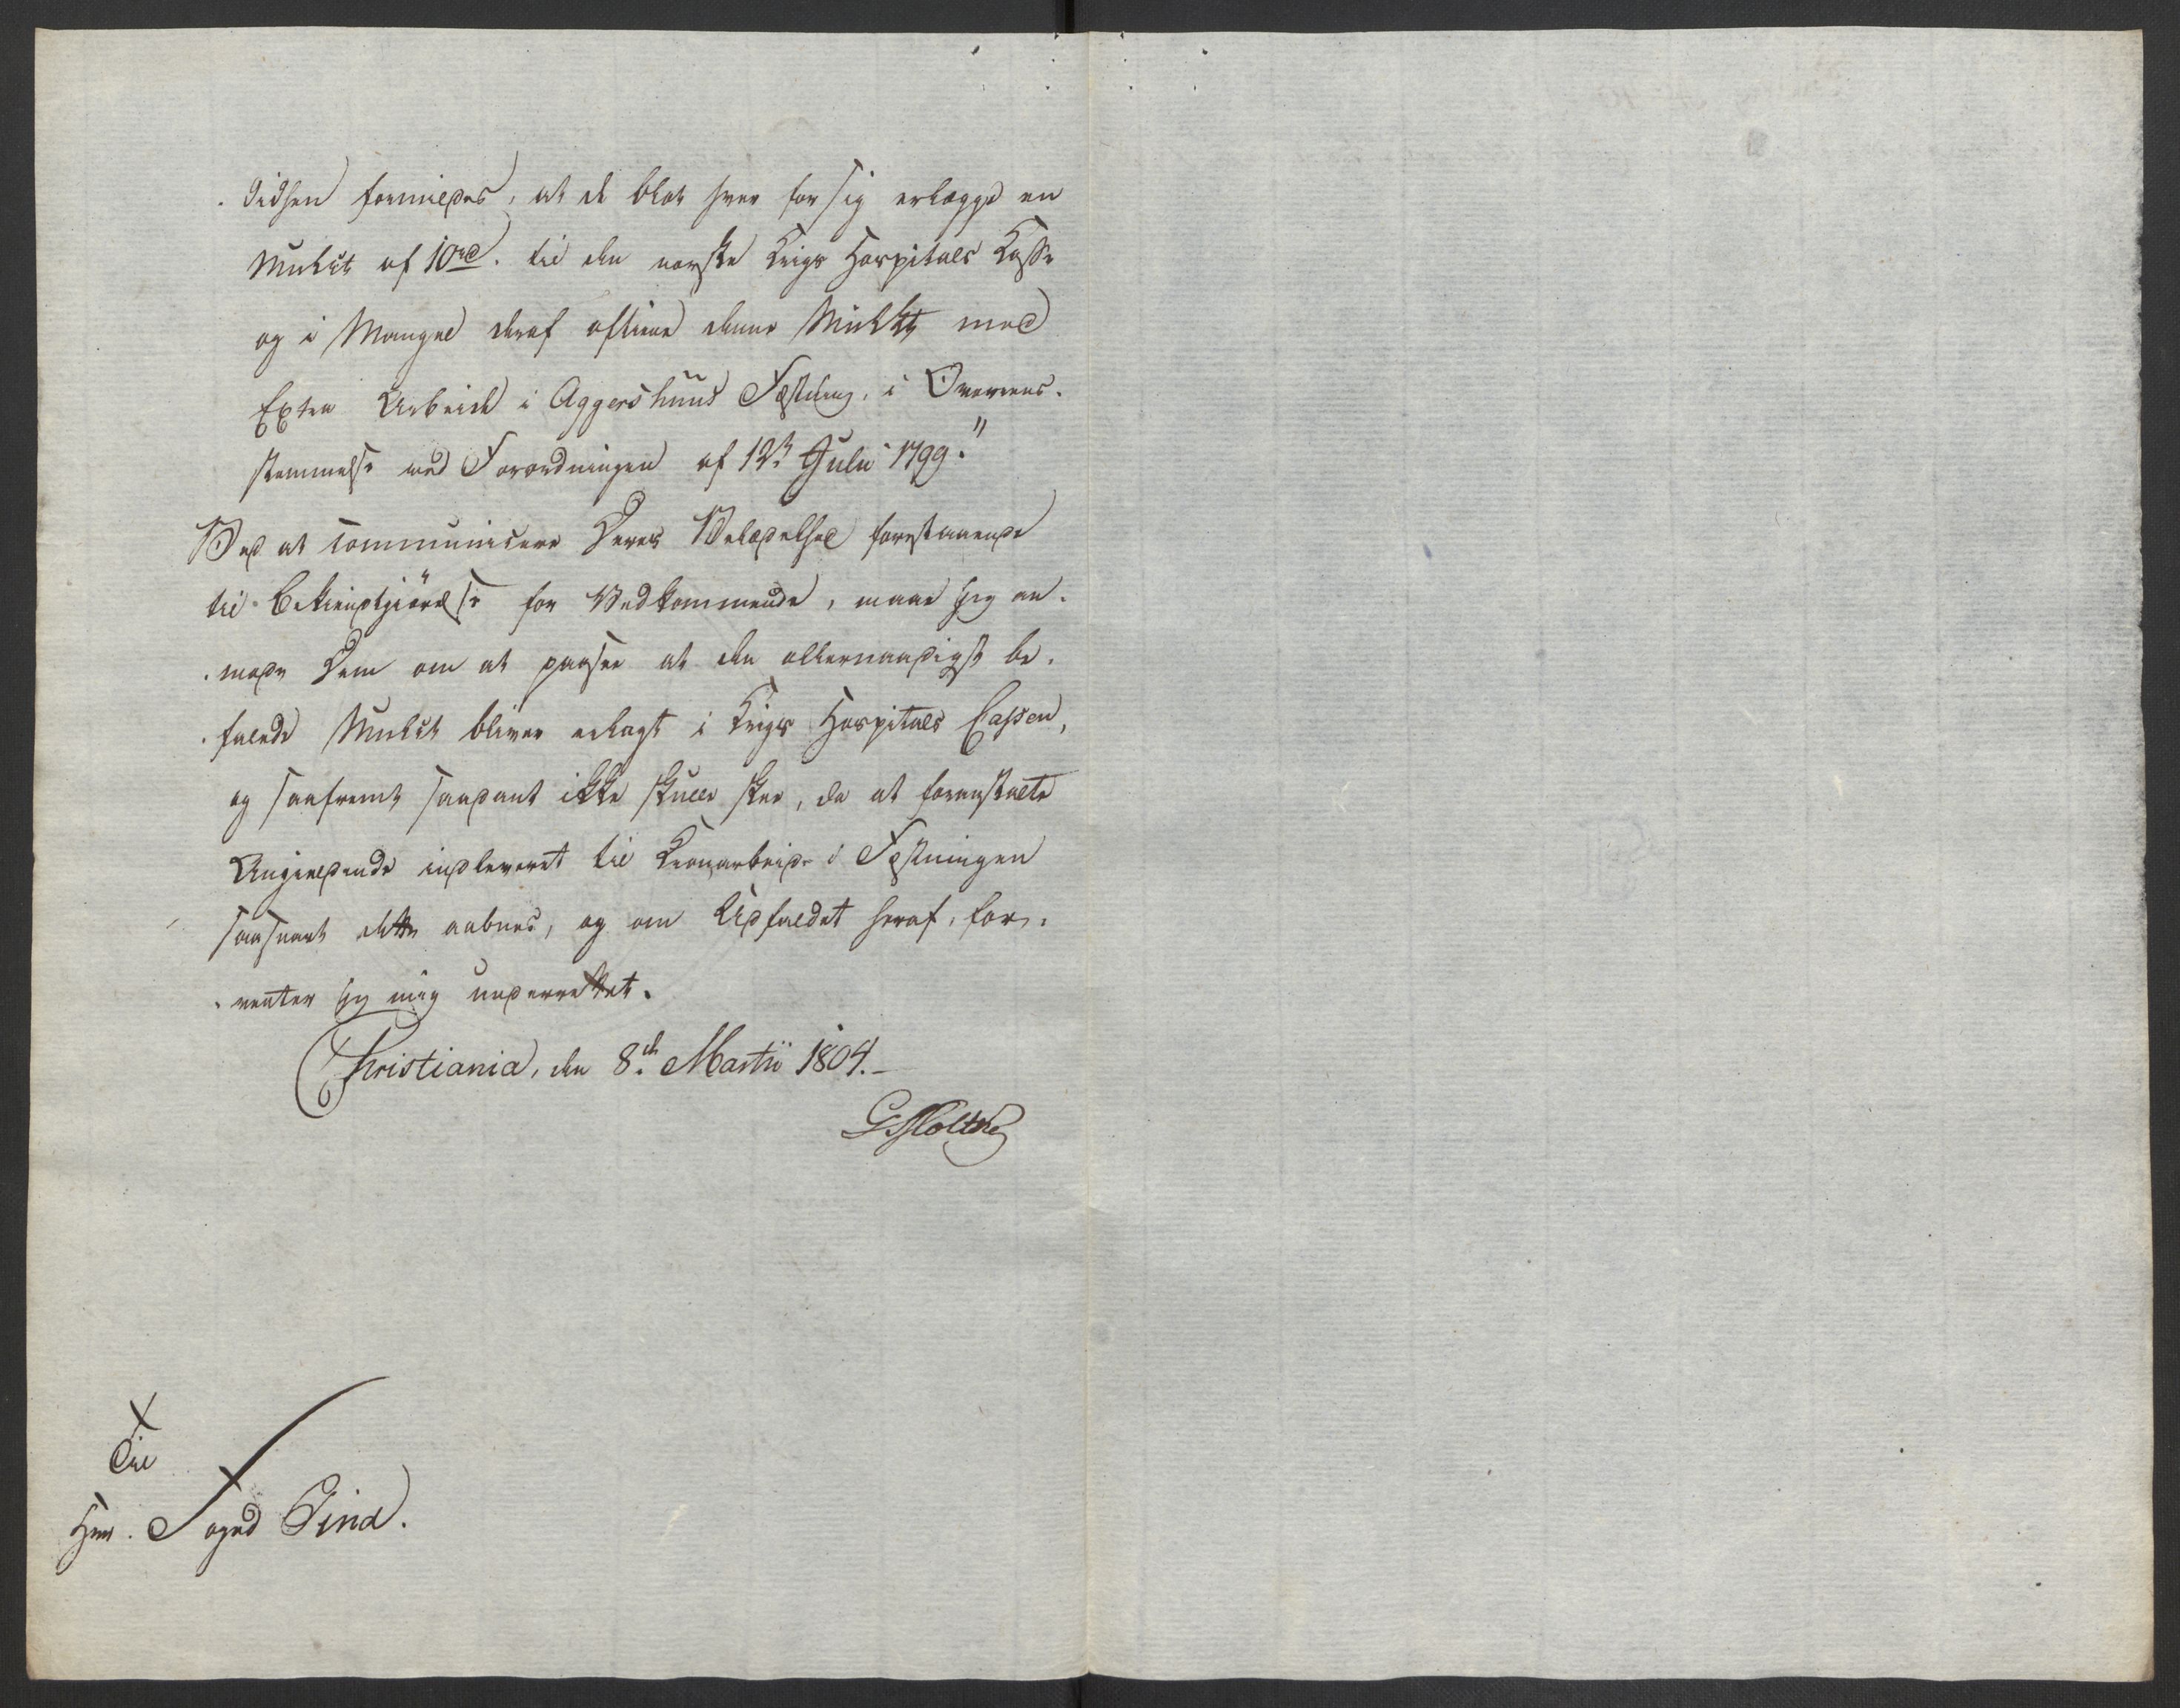 didsen formildes, at de blot hver for sig erlægge en
Mulct af 10 rd. til den norske Krigs Hospitals Casse
og i Mangel deraf aftiene denne Mulkt med
Extra Arbeide i Aggershuus Fæstning, i Overeens-
stemmelse med Forordningen af 12te Julii 1799."
Ved at communicere Deres Velædelhed forestaaende
til Bekiendtgiørelse for Vedkommende, maae jeg an-
mode Dem om at paasee at den allernaadigst be-
falede Mulct bliver erlagt i Krigs Hospitals Cassen,
og saafremt saadant ikke skulle skee, da at foranstalte
Angieldende indleveret til Kronarbeide i Fæstningen
saasnart dette aabnes, og om Udfaldet heraf, for-
venter jeg mig underrettet.
Christiania, den 8de Martii 1804.
G Moltke
Til
Hrr. Foged Gind.